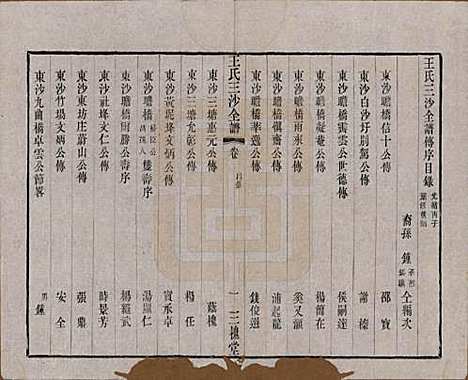 王氏三沙全譜傳序目錄
裔孫 鍾 仝編次
東沙瞻橋信十公傳 邵寶
東沙白沙圩別駕公傳 謝榛
東沙瞻橋霱雲公世德傳 侯嗣達
東沙瞻橋凝菴公傳 楊體在
東沙瞻橋雨來公傳 奚又灝
東沙瞻橋慎齋公傳 浦起龍
東沙瞻橋莘逸公傳 錢俊選
王氏三沙全譜 卷 目錄 一 三槐堂
東沙三塘惠元公傳 蔭槐
東沙三塘允彰公傳 楊任
東沙黃泥峰文炳公傳 竇承卓
東沙瞻橋 八樓壽序 湯仁
東沙瞻橋爾勝公壽序 楊 武
東沙社峰文仁公傳 時景芳
東沙東坊庄蔚山公傳 張鼎
東沙竹場文炳公傳 安全
東沙九曲橋卓雲公節畧 男鍾